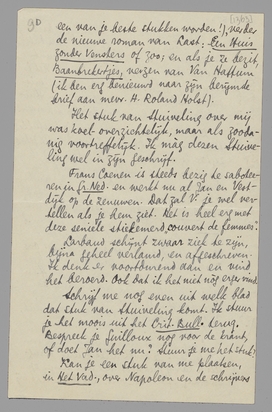 9D [1963]
een van je beste stukken worden!), verder
de nieuwe roman van Rast: Een Huis
zonder Vensters of zoo; en als je ze bezit,
Baanbrekertjes, verzen van Van Hattum
(ik den erg benieuwd naar zijn berijmde
brief aan mevr. H. Roland Holst).
Het stuk van Stuiveling over mij
was koel overzichtelijk, maar als zooda-
nig voortreffelijk. Ik mag dezen Stuive-
ling wel in zijn geschrijf.
Frans Coenen is steeds bezig te sabotee-
ren in Gr. Ned. en werkt nu al Jan en Vest-
dijk op de zenuwen. Dat zal V. je wel ver-
tellen als je hem ziet. Het is heel erg met
deze seniele stiekemerd, "couvert de femmes".
Larbaud schijnt zwaar ziek te zijn,
bijna geheel verlamd, en afgeschreven.
Ik denk er voortdurend aan en vind
het beroerd. Ook dat ik het niet nòg erger vind.
Schrijf me nog even uit welk blad
dat stuk van Stuiveling komt. Ik stuur
je het moois uit het Crit. Bull. terug.
Bespreek je Guilloux nog voor de krant,
of doet Jan het nu? Stuur je me het stuk?
Kan je een stuk van me plaatsen,
in Het Vad., over Napoleon en de schrijvers